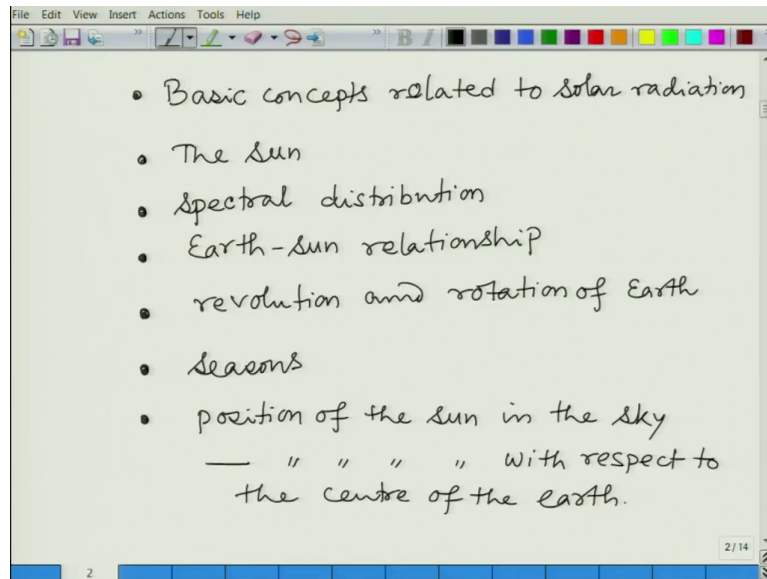 File Edit View Insert Actions Tools Help
» » B I
• Basic concepts related to solar radiation
• The Sun
• Spectral distribution
• Earth-Sun relationship
• revolution and rotation of Earth
• Seasons
• position of the sun in the sky
— " " " " with respect to
the centre of the earth.
2/14
2